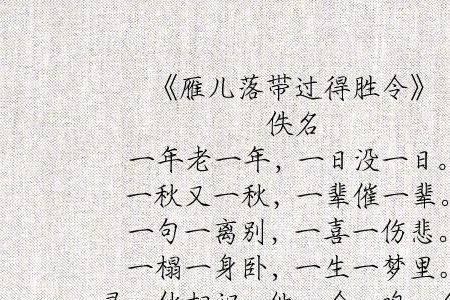 《雁儿落带过得胜令》
佚名
一年老一年，一日没一日。
一秋又一秋，一辈催一辈。
一句一离别，一喜一伤悲。
一榻一身卧，一生一梦里。